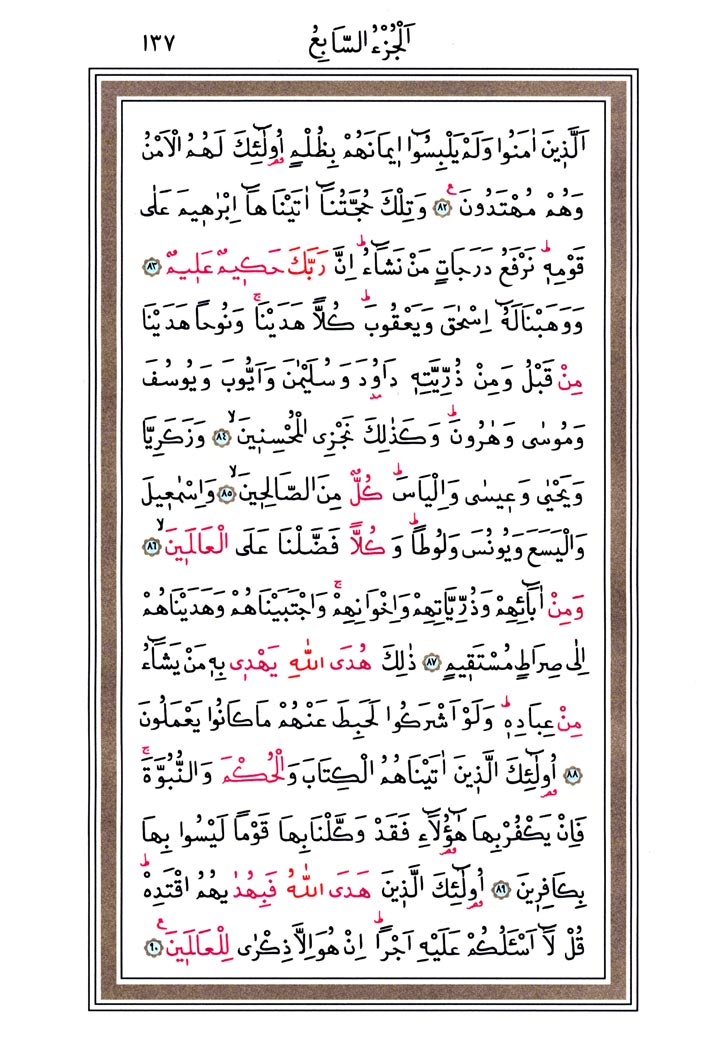 اَلْجُزْءُ السَّابِعُ ١٣٧
اَلَّذٖينَ اٰمَنُوا وَلَمْ يَلْبِسُٓوا اٖيمَانَهُمْ بِظُلْمٍ اُو۬لٰٓئِكَ لَهُمُ الْاَمْنُ
وَهُمْ مُهْتَدُونَࣖ ﴿٨٢﴾ وَتِلْكَ حُجَّتُنَٓا اٰتَيْنَاهَٓا اِبْرٰهٖيمَ عَلٰى
قَوْمِهٖؕ نَرْفَعُ دَرَجَاتٍ مَنْ نَشَٓاءُؕ اِنَّ رَبَّكَ حَكٖيمٌ عَلٖيمٌ ﴿٨٣﴾
وَوَهَبْنَا لَهُٓ اِسْحٰقَ وَيَعْقُوبَؕ كُلًّا هَدَيْنَاۚ وَنُوحًا هَدَيْنَا
مِنْ قَبْلُ وَمِنْ ذُرِّيَّتِهٖ دَاوُ۫دَ وَسُلَيْمٰنَ وَاَيُّوبَ وَيُوسُفَ
وَمُوسٰى وَهٰرُونَؕ وَكَذٰلِكَ نَجْزِي الْمُحْسِنٖينَۙ ﴿٨٤﴾ وَزَكَرِيَّا
وَيَحْيٰى وَعٖيسٰى وَاِلْيَاسَؕ كُلٌّ مِنَ الصَّالِحٖينَۙ ﴿٨٥﴾ وَاِسْمٰعٖيلَ
وَالْيَسَعَ وَيُونُسَ وَلُوطًاؕ وَكُلًّا فَضَّلْنَا عَلَى الْعَالَمٖينَۙ ﴿٨٦﴾
وَمِنْ اٰبَٓائِهِمْ وَذُرِّيَّاتِهِمْ وَاِخْوَانِهِمْۚ وَاجْتَبَيْنَاهُمْ وَهَدَيْنَاهُمْ
اِلٰى صِرَاطٍ مُسْتَقٖيمٍ ﴿٨٧﴾ ذٰلِكَ هُدَى اللّٰهِ يَهْدٖي بِهٖ مَنْ يَشَٓاءُ
مِنْ عِبَادِهٖؕ وَلَوْ اَشْرَكُوا لَحَبِطَ عَنْهُمْ مَا كَانُوا يَعْمَلُونَ
﴿٨٨﴾ اُو۬لٰٓئِكَ الَّذٖينَ اٰتَيْنَاهُمُ الْكِتَابَ وَالْحُكْمَ وَالنُّبُوَّةَۚ
فَاِنْ يَكْفُرْ بِهَا هٰٓؤُ۬لَٓاءِ فَقَدْ وَكَّلْنَا بِهَا قَوْمًا لَيْسُوا بِهَا
بِكَافِرٖينَ ﴿٨٩﴾ اُو۬لٰٓئِكَ الَّذٖينَ هَدَى اللّٰهُ فَبِهُدٰيهُمُ اقْتَدِهْؕ
قُلْ لَٓا اَسْـَٔلُكُمْ عَلَيْهِ اَجْرًاؕ اِنْ هُوَ اِلَّا ذِكْرٰى لِلْعَالَمٖينَࣖ ﴿٩٠﴾